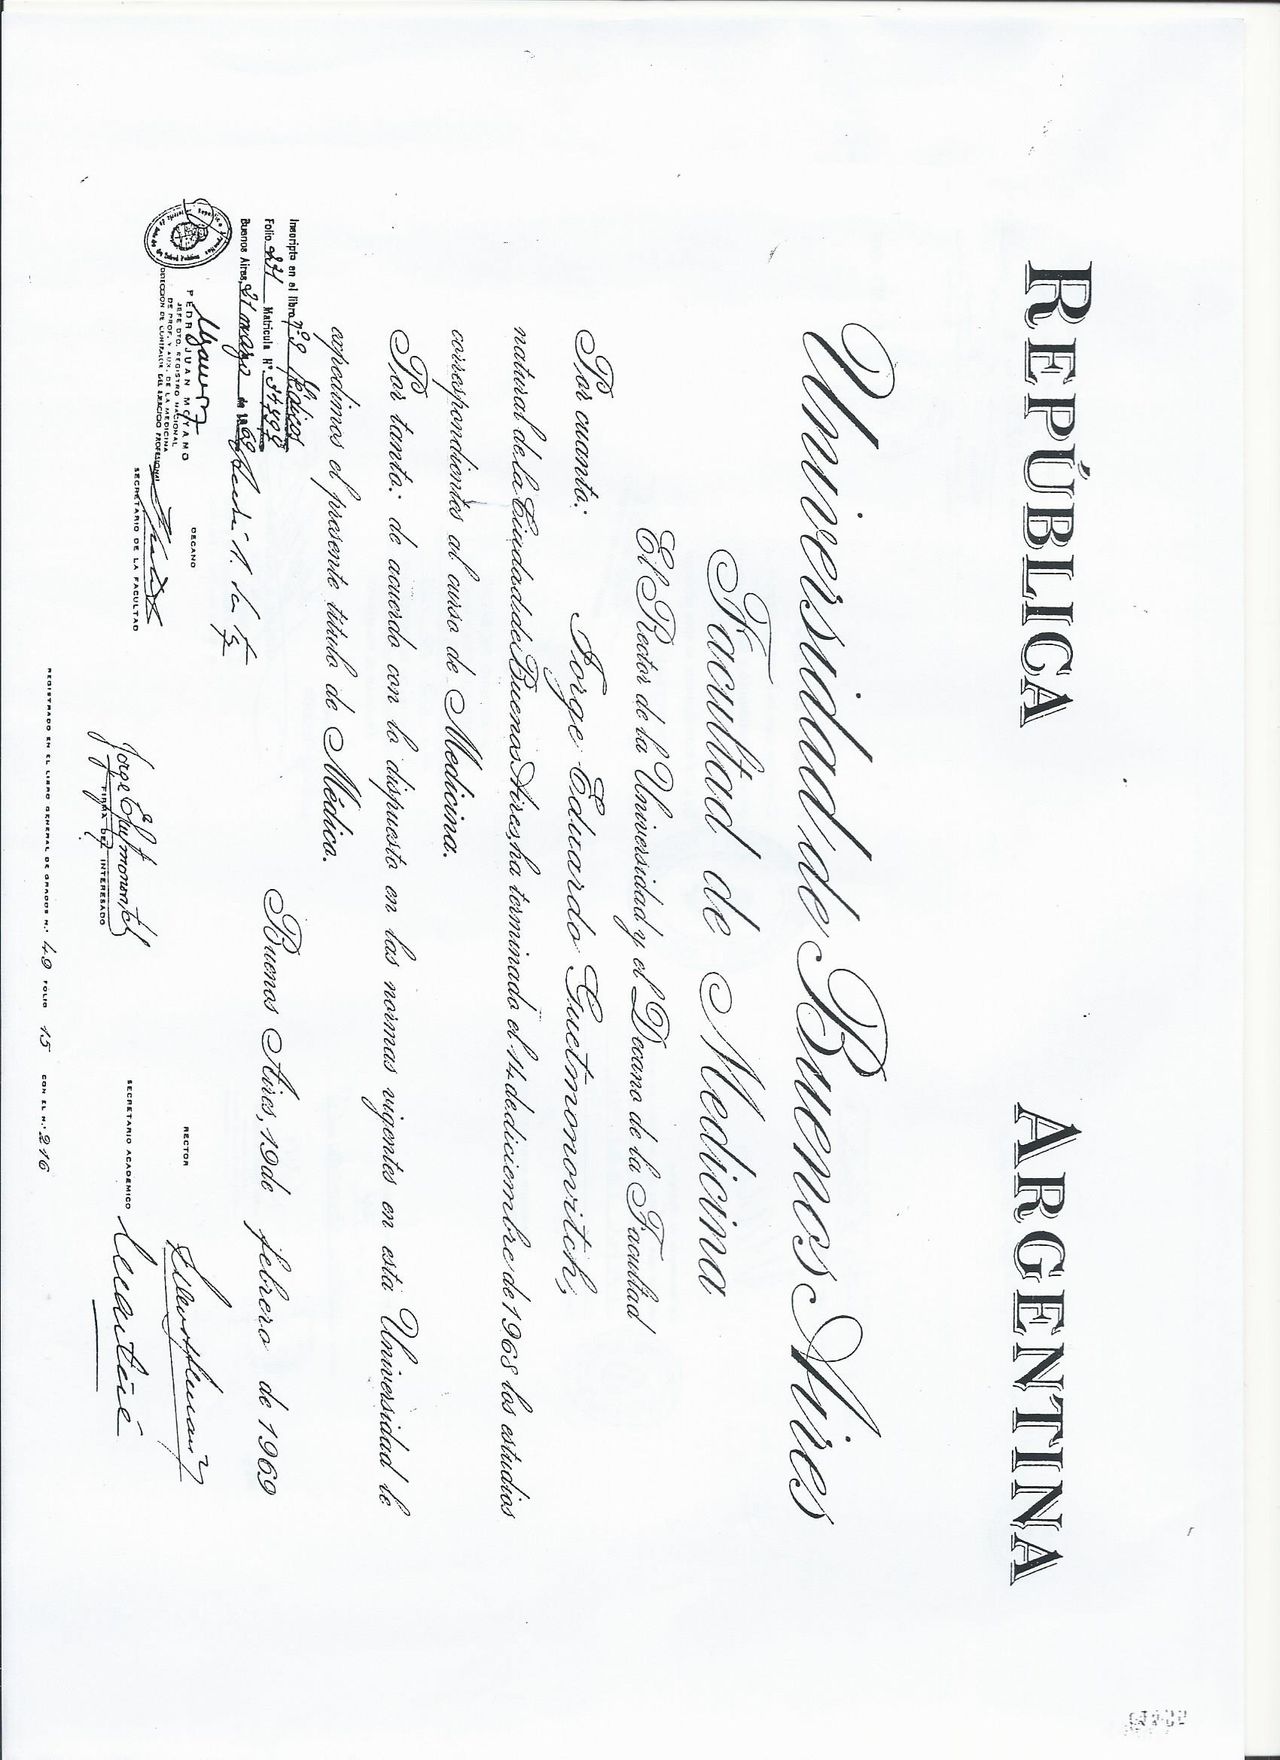 REPÚBLICA ARGENTINA
Universidad de Buenos Aires
Facultad de Medicina
El Rector de la Universidad y el Decano de la Facultad
Por cuanto: Jorge Eduardo Guetmonovitch,
natural de la Ciudad de Buenos Aires, ha terminado el 14 de diciembre de 1968 los estudios
correspondientes al curso de Medicina.
Por tanto: de acuerdo con lo dispuesto en las normas vigentes en esta Universidad le
expedimos el presente título de Médico.
Buenos Aires, 19 de febrero de 1969
Inscripto en el libro nº 9 Médicos
Folio 231 Matrícula Nº
Buenos Aires, 21 marzo de 1969
PEDRO JUAN MOYANO
JEFE DTO. REGISTRO NACIONAL
DE PROF. Y AUX. DE LA MEDICINA
DECANO
SECRETARIO DE LA FACULTAD
FIRMA DEL INTERESADO
RECTOR
SECRETARIO ACADEMICO
REGISTRADO EN EL LIBRO GENERAL DE GRADOS N.º 49 FOLIO 15 CON EL N.º 216